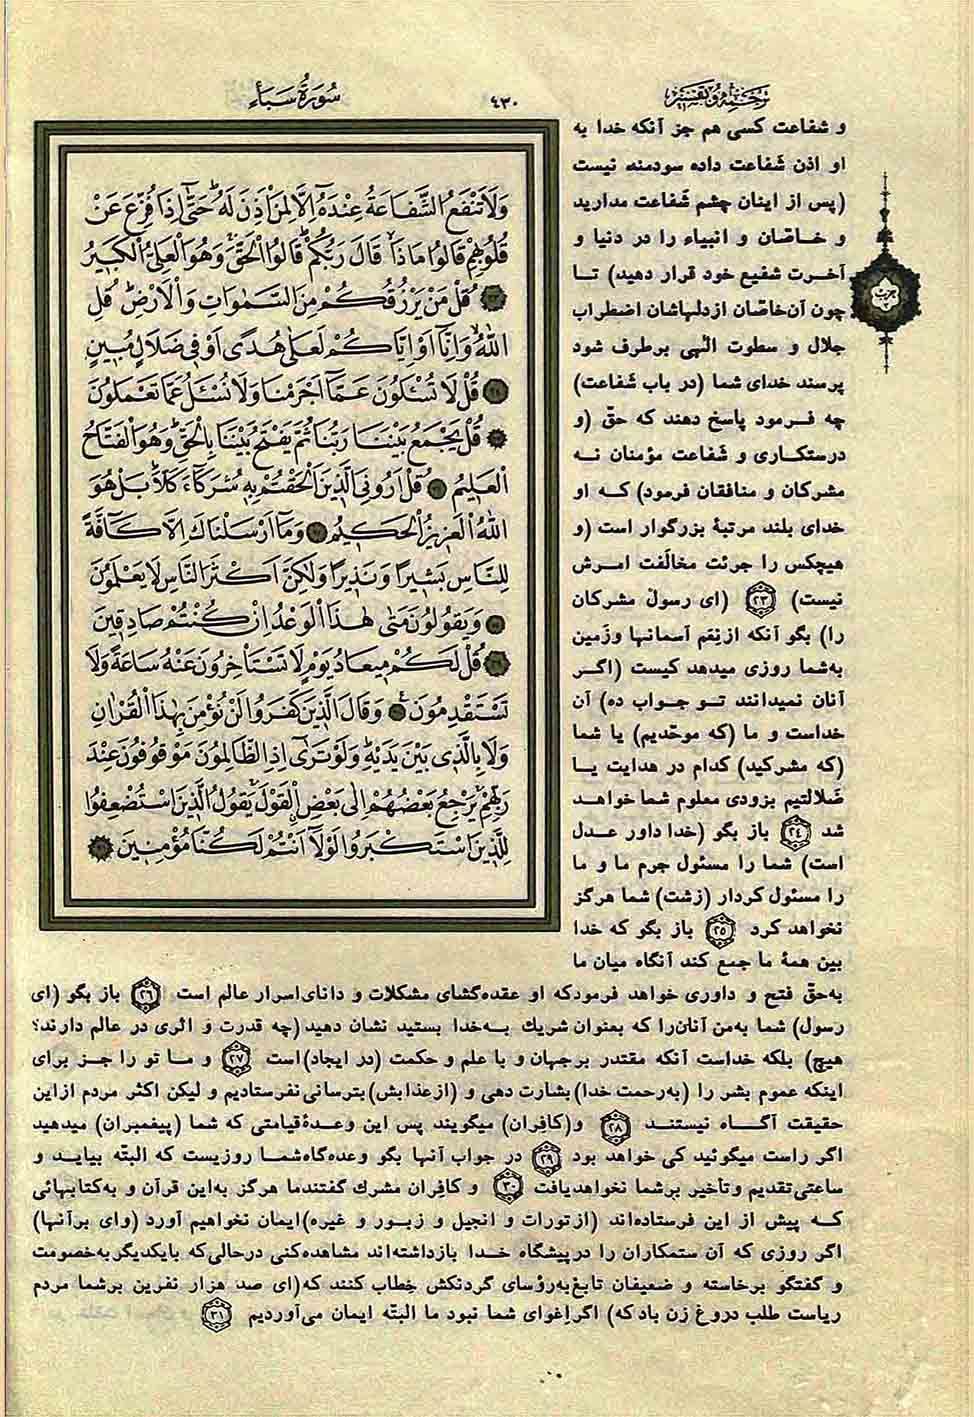 ترجمه و تفسیر
٤٣٠
سُورَةُ سَبَأ
وَلَا تَنْفَعُ الشَّفَاعَةُ عِنْدَهُ إِلَّا لِمَنْ أَذِنَ لَهُ حَتَّى إِذَا فُزِّعَ عَنْ
قُلُوبِهِمْ قَالُوا مَاذَا قَالَ رَبُّكُمْ قَالُوا الْحَقَّ وَهُوَ الْعَلِيُّ الْكَبِيرُ
قُلْ مَنْ يَرْزُقُكُمْ مِنَ السَّمٰوَاتِ وَالْأَرْضِ قُلِ
اللّٰهُ وَإِنَّا أَوْ إِيَّاكُمْ لَعَلَى هُدًى أَوْ فِي ضَلَالٍ مُبِينٍ
قُلْ لَا تُسْئَلُونَ عَمَّا أَجْرَمْنَا وَلَا نُسْئَلُ عَمَّا تَعْمَلُونَ
قُلْ يَجْمَعُ بَيْنَنَا رَبُّنَا ثُمَّ يَفْتَحُ بَيْنَنَا بِالْحَقِّ وَهُوَ الْفَتَّاحُ
الْعَلِيمُ قُلْ أَرُونِيَ الَّذِينَ أَلْحَقْتُمْ بِهِ شُرَكَاءَ كَلَّا بَلْ هُوَ
اللّٰهُ الْعَزِيزُ الْحَكِيمُ وَمَا أَرْسَلْنَاكَ إِلَّا كَافَّةً
لِلنَّاسِ بَشِيرًا وَنَذِيرًا وَلٰكِنَّ أَكْثَرَ النَّاسِ لَا يَعْلَمُونَ
وَيَقُولُونَ مَتَى هٰذَا الْوَعْدُ إِنْ كُنْتُمْ صَادِقِينَ
قُلْ لَكُمْ مِيعَادُ يَوْمٍ لَا تَسْتَأْخِرُونَ عَنْهُ سَاعَةً وَلَا
تَسْتَقْدِمُونَ وَقَالَ الَّذِينَ كَفَرُوا لَنْ نُؤْمِنَ بِهٰذَا الْقُرْاٰنِ
وَلَا بِالَّذِي بَيْنَ يَدَيْهِ وَلَوْ تَرَى إِذِ الظَّالِمُونَ مَوْقُوفُونَ عِنْدَ
رَبِّهِمْ يَرْجِعُ بَعْضُهُمْ إِلَى بَعْضٍ الْقَوْلَ يَقُولُ الَّذِينَ اسْتُضْعِفُوا
لِلَّذِينَ اسْتَكْبَرُوا لَوْلَا أَنْتُمْ لَكُنَّا مُؤْمِنِينَ
و شفاعت کسی هم جز آنکه خدا به
او اذن شَفاعت داده سودمند نیست
(پس از اینان چشم شَفاعت مدارید
و خـاصّان و انبیاء را در دنیا و
آخـرت شفیع خود قرار دهید) تـا
چون آن خاصّان از دلهاشان اضطراب
جلال و سطوت الٰهی برطرف شود
پرسند خدای شما (در باب شَفاعت)
چه فـرمود پاسخ دهند که حقّ (و
درستکـاری و شَفاعت مؤمنان نـه
مشرکان و منافقان فرمود) کـه او
خدای بلند مرتبۀ بزرگوار است (و
هیچکس را جرئت مخالَفت امـرش
نیست) ٢٣ (ای رسول مشرکان
را) بگو آنکه از نِعَم آسمانها و زمین
به‌شما روزی میدهد کیست (اگـر
آنان نمیدانند تـو جـواب ده) آن
خداست و ما (که موحّدیم) یا شما
(که مشرکید) کدام در هدایت یـا
ضَلالتیم بزودی معلوم شما خواهـد
شد ٢٤ باز بگو (خدا داور عـدل
است) شما را مسئول جرم ما و ما
را مسئول کردار (زشت) شما هرگز
نخواهد کرد ٢٥ باز بگو که خدا
بین همۀ ما جمع کند آنگاه میان ما
به‌حقّ فتح و داوری خواهد فرمود که او عقده‌گشای مشکلات و دانای اسرار عالم است ٢٦ باز بگو (ای
رسول) شما به‌من آنان را که بعنوان شریك بـه‌خدا بستید نشان دهید (چه قدرت و اثری در عالم دارند؟
هیچ) بلکه خداست آنکه مقتدر بر جهان و با علم و حکمت (در ایجاد) است ٢٧ و مـا تو را جـز برای
اینکه عموم بشر را (به‌رحمت خدا) بشارت دهی و (از عذابش) بترسانی نفرستادیم و لیکن اکثر مردم از این
حقیقت آگـاه نیستنـد ٢٨ و (کافِران) میگویند پس این وعـدۀ قیامتی که شما (پیغمبران) میدهید
اگر راست میگوئید کی خواهد بود ٢٩ در جواب آنها بگو وعده‌گاه شمـا روزیست که البتّه بیایـد و
ساعتی تقدیم و تأخیر بر شما نخواهد یافت ٣٠ و کافِران مشرك گفتند ما هرگز به‌این قرآن و به‌کتابهائی
کـه پیش از این فرستاده‌اند (از تورات و انجیل و زبـور و غیره) ایمان نخواهیم آورد (وای بر آنها)
اگر روزی که آن ستمکاران را در پیشگاه خـدا بازداشته‌اند مشاهده کنی در حالی که بایکدیگر به‌خصومت
و گفتگو برخاسته و ضعیفان تابع به‌رؤسای گردنکش خِطاب کنند که (ای صد هزار نفرین بر شما مردم
ریاست طلب دروغ زن باد که) اگر اِغوای شما نبود ما البتّه ایمان می‌آوردیم ٣١